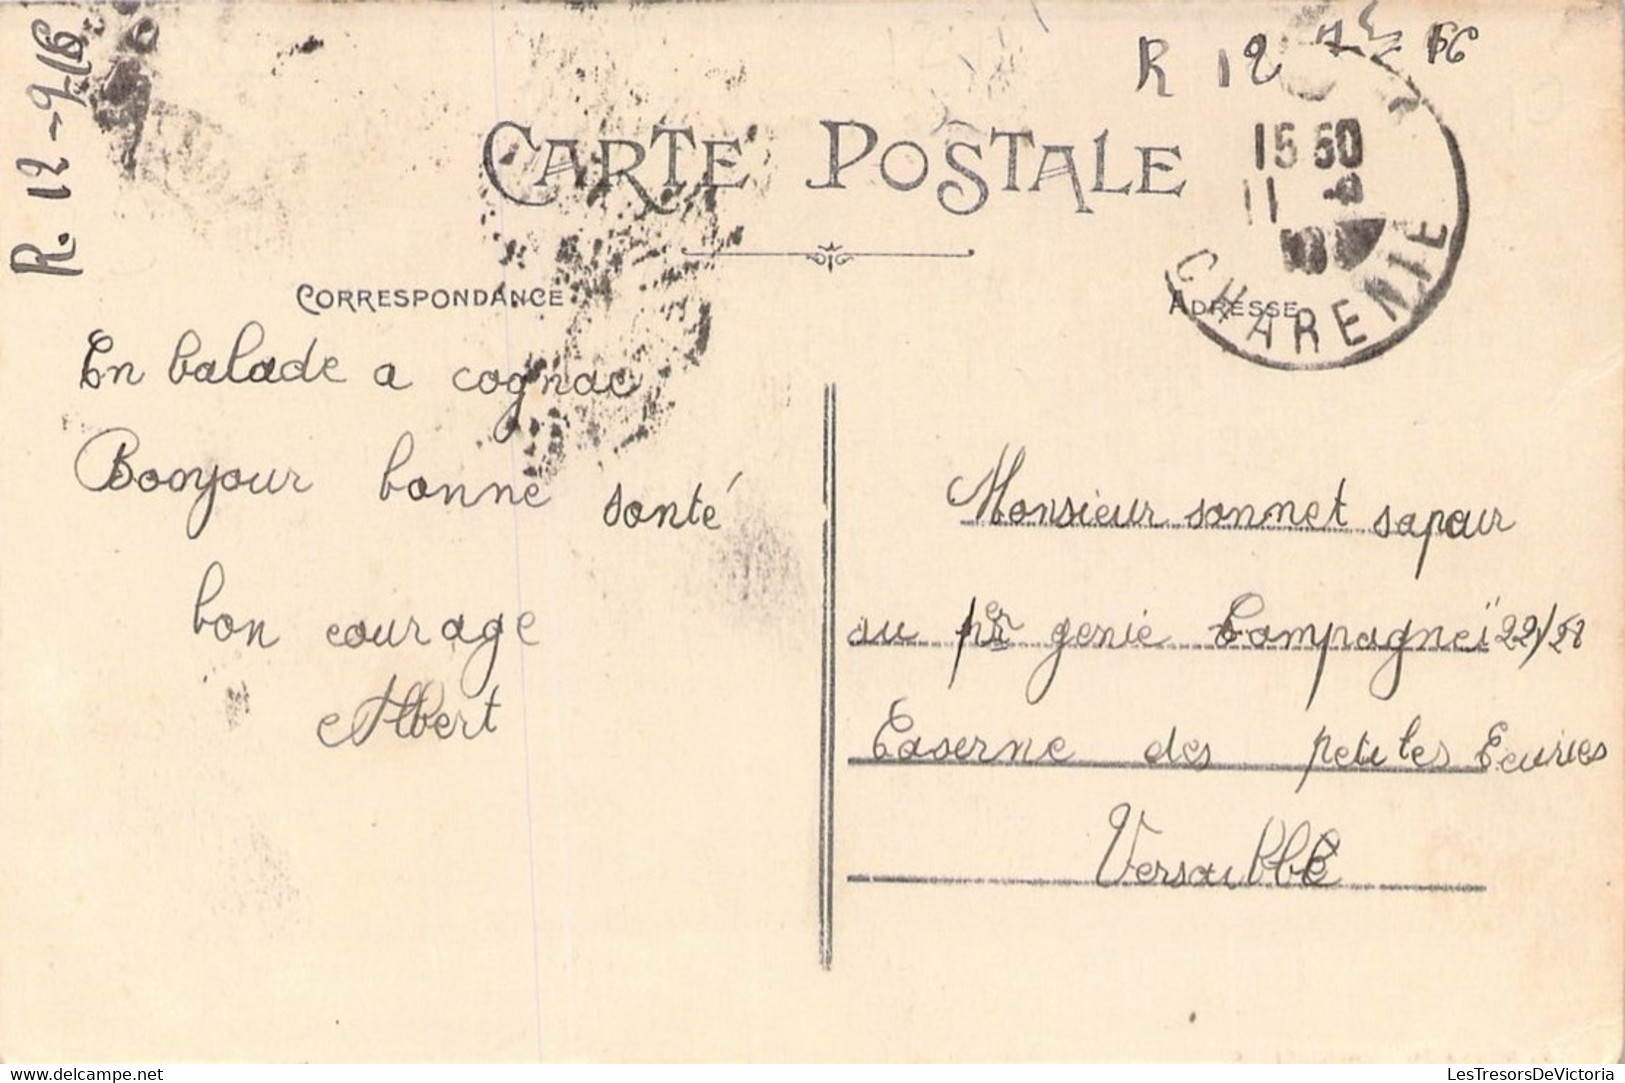 R. 12-9-16
R 12
CARTE POSTALE
15 50
11
CHARENTE
CORRESPONDANCE
ADRESSE
En balade a cognac
Bonjour bonne santé
bon courage
Albert
Monsieur sonnet sapeur
au 1er genie Compagnei 22/28
Caserne des petites Ecuries
Versaille
LesTresorsDeVictoria
delcampe.net